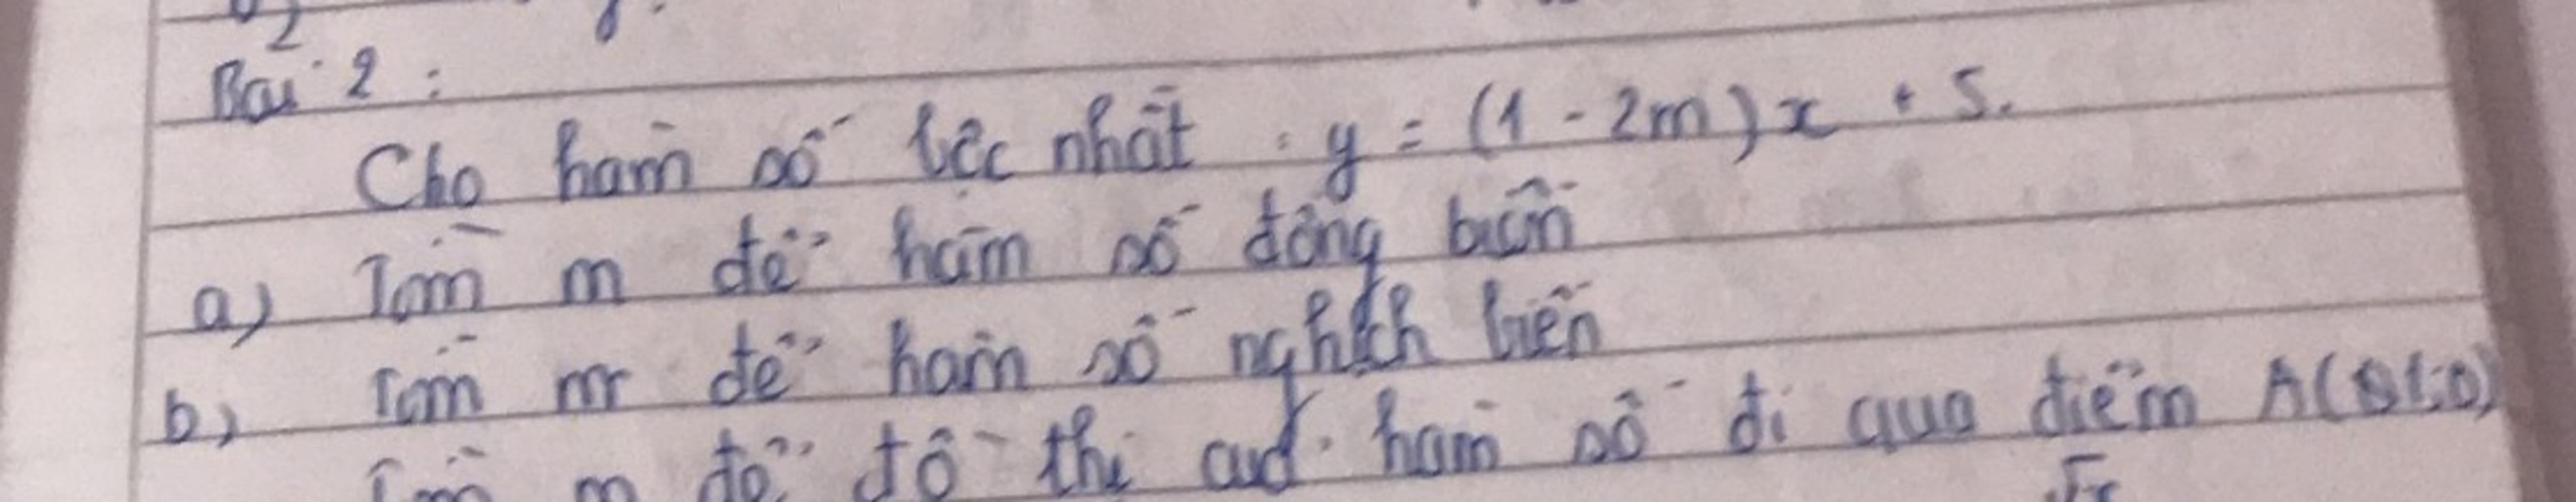 Bài 2 :
Cho hàm số bậc nhất : y = (1 - 2m)x + 5.
a) Tìm m để hàm số đồng biến
b) Tìm m để hàm số nghịch biến
Tìm m để đồ thị của hàm số đi qua điểm A(